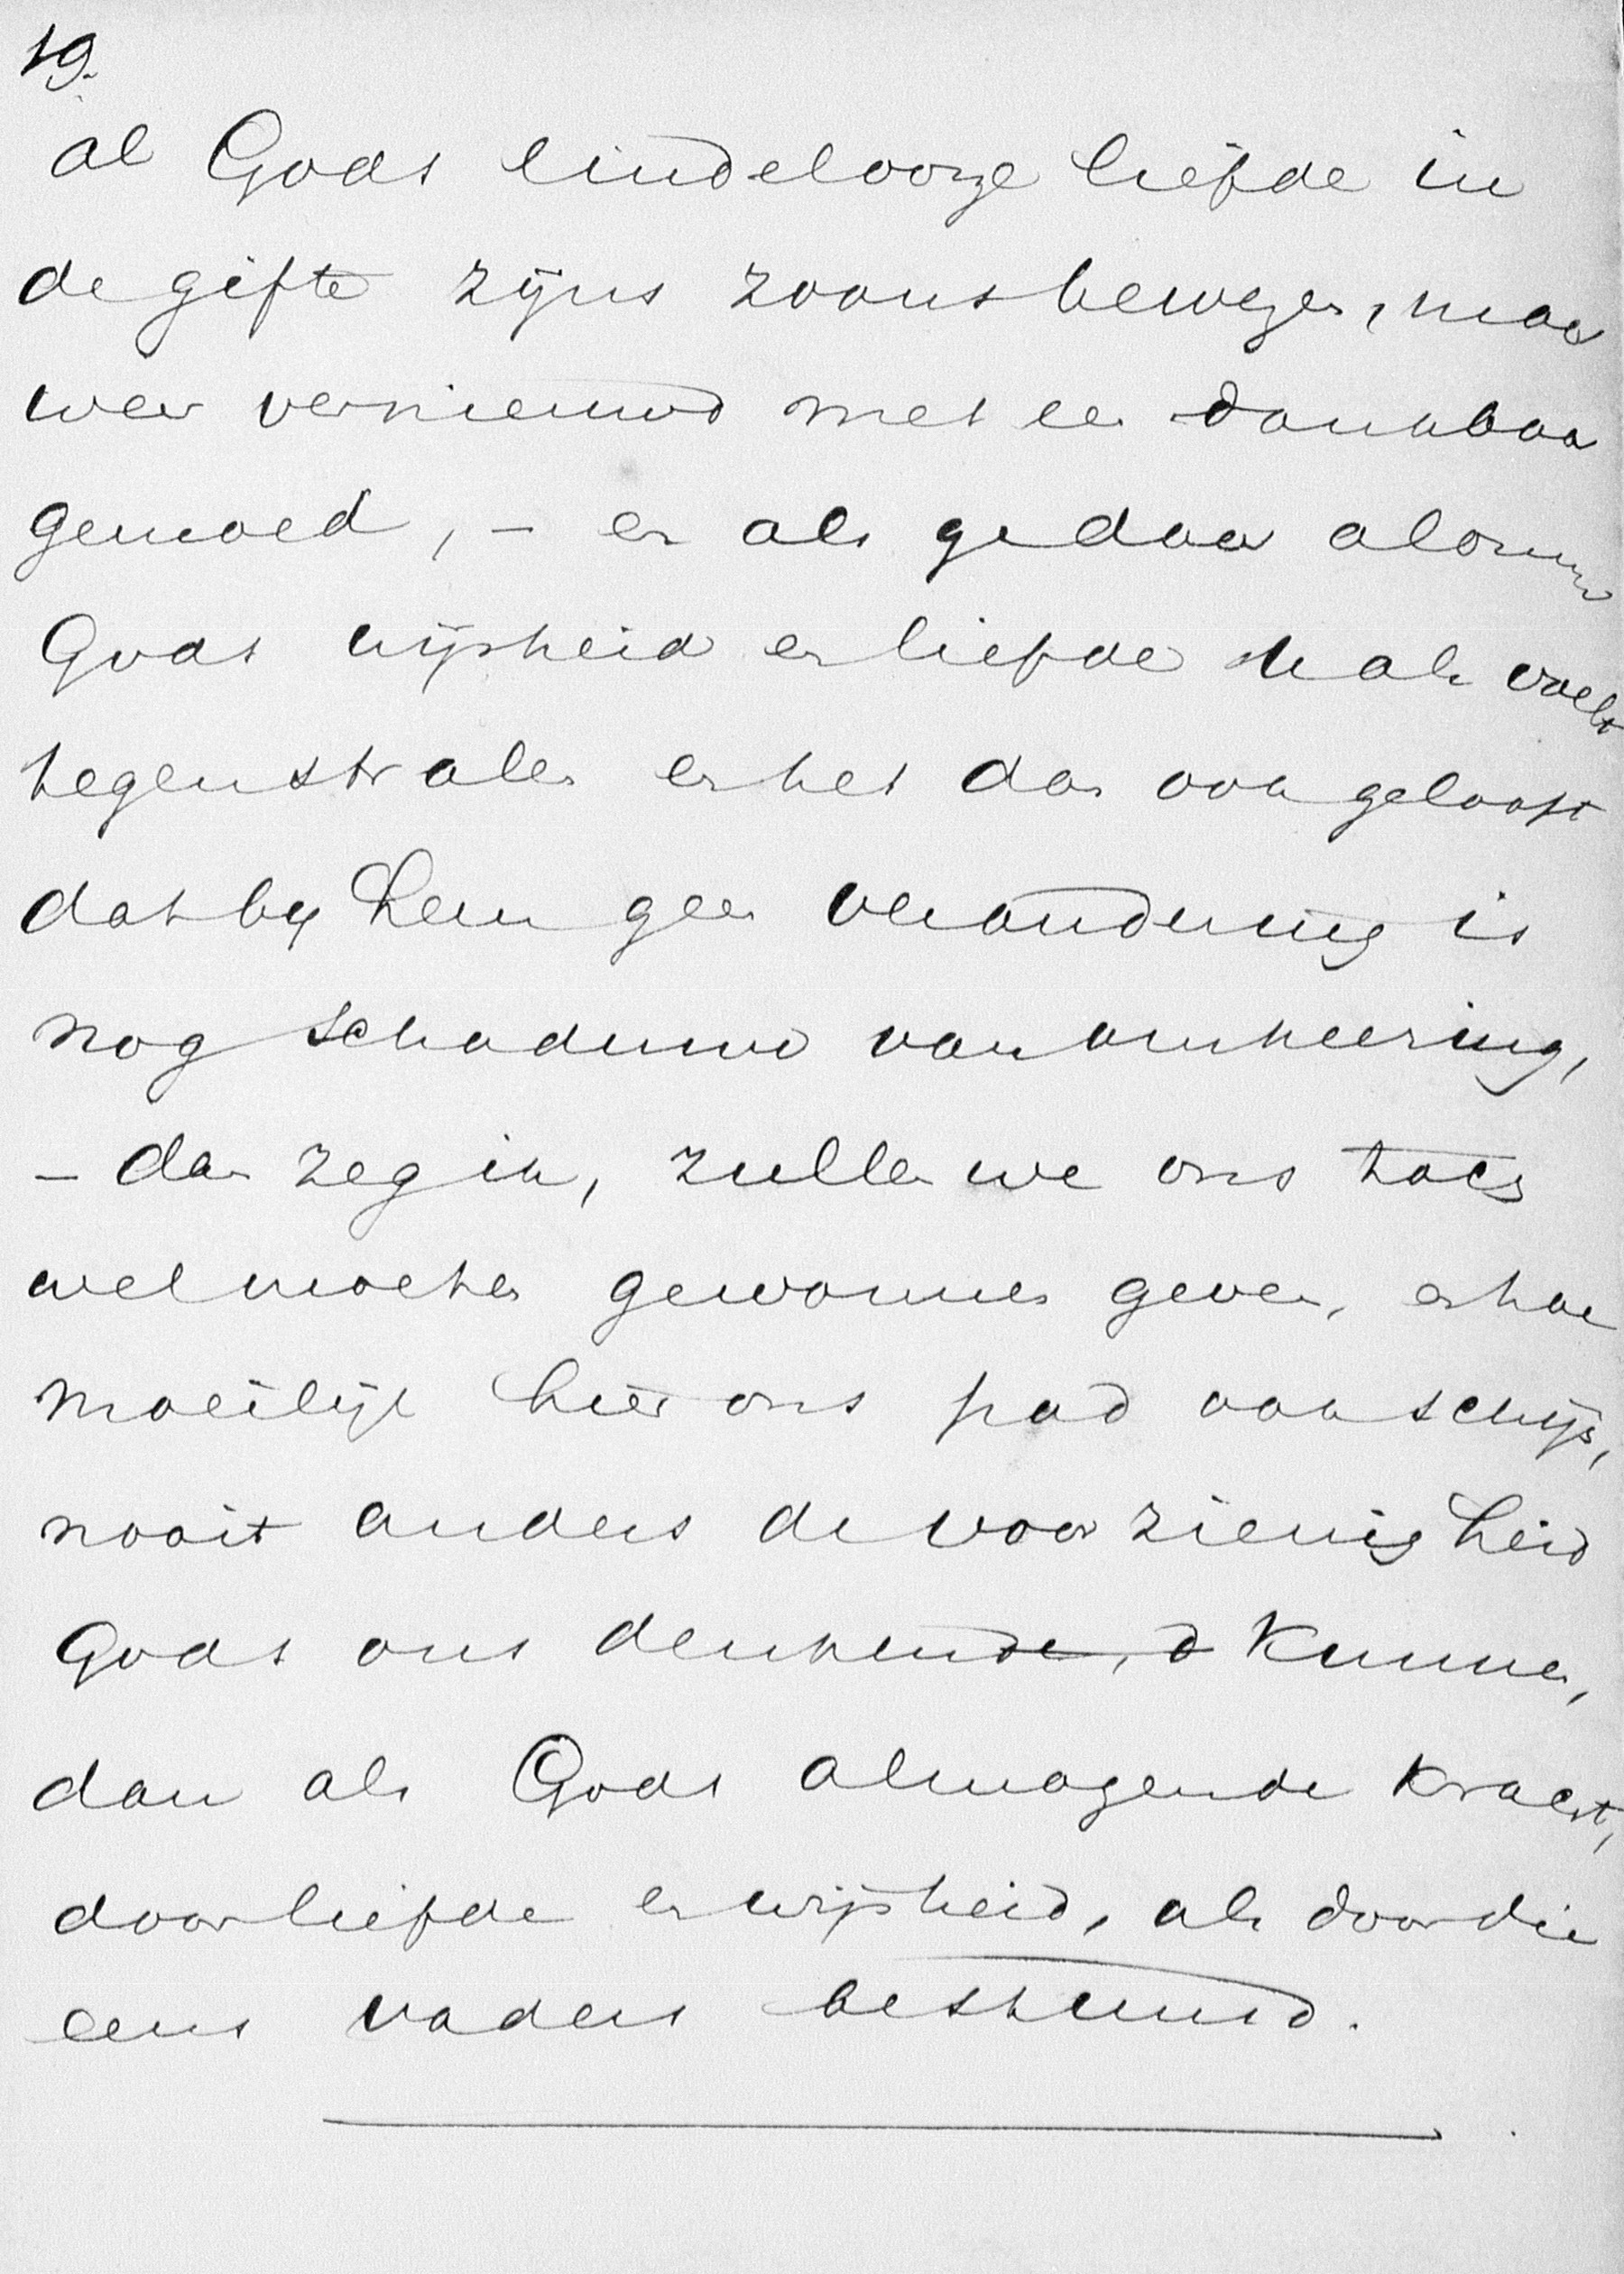 19.
al Gods eindelooze liefde in
de gifte zijns zoons bewegen, maar
weer vernieuwd met een dankbaar
gemoed, – en als ge daar alom
Gods wijsheid en liefde u als voelt
tegenstralen en het dan ook gelooft
dat by hem geen verandering is
nog schaduwe van omkeering,
– dan zeg ik, zullen we ons toch
wel moeten gewonnen geven, en hoe
moeilijk hier ons pad ook schijn,
nooit anders de voorzienigheid
Gods ons denken kunnen,
dan als Gods almogende kracht,
door liefde en wijsheid, als door die
eens vaders bestuurd.